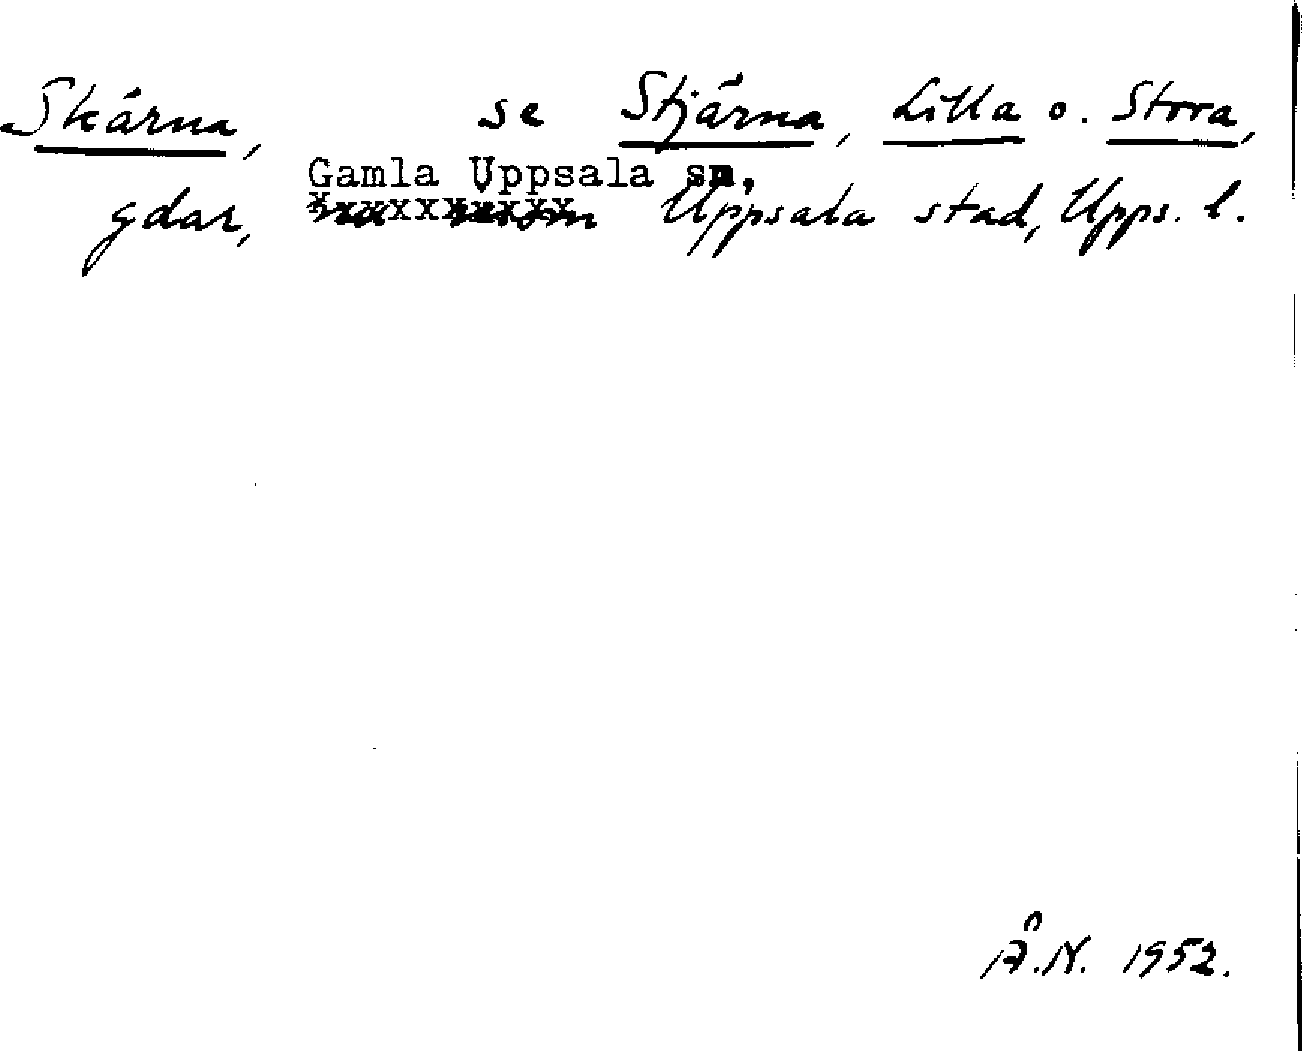 Skärna, se Stjärna, Lilla o. Stora,
Gamla Uppsala sn,
gdar, Uppsala stad, Upps. l.
Å.N. 1952.